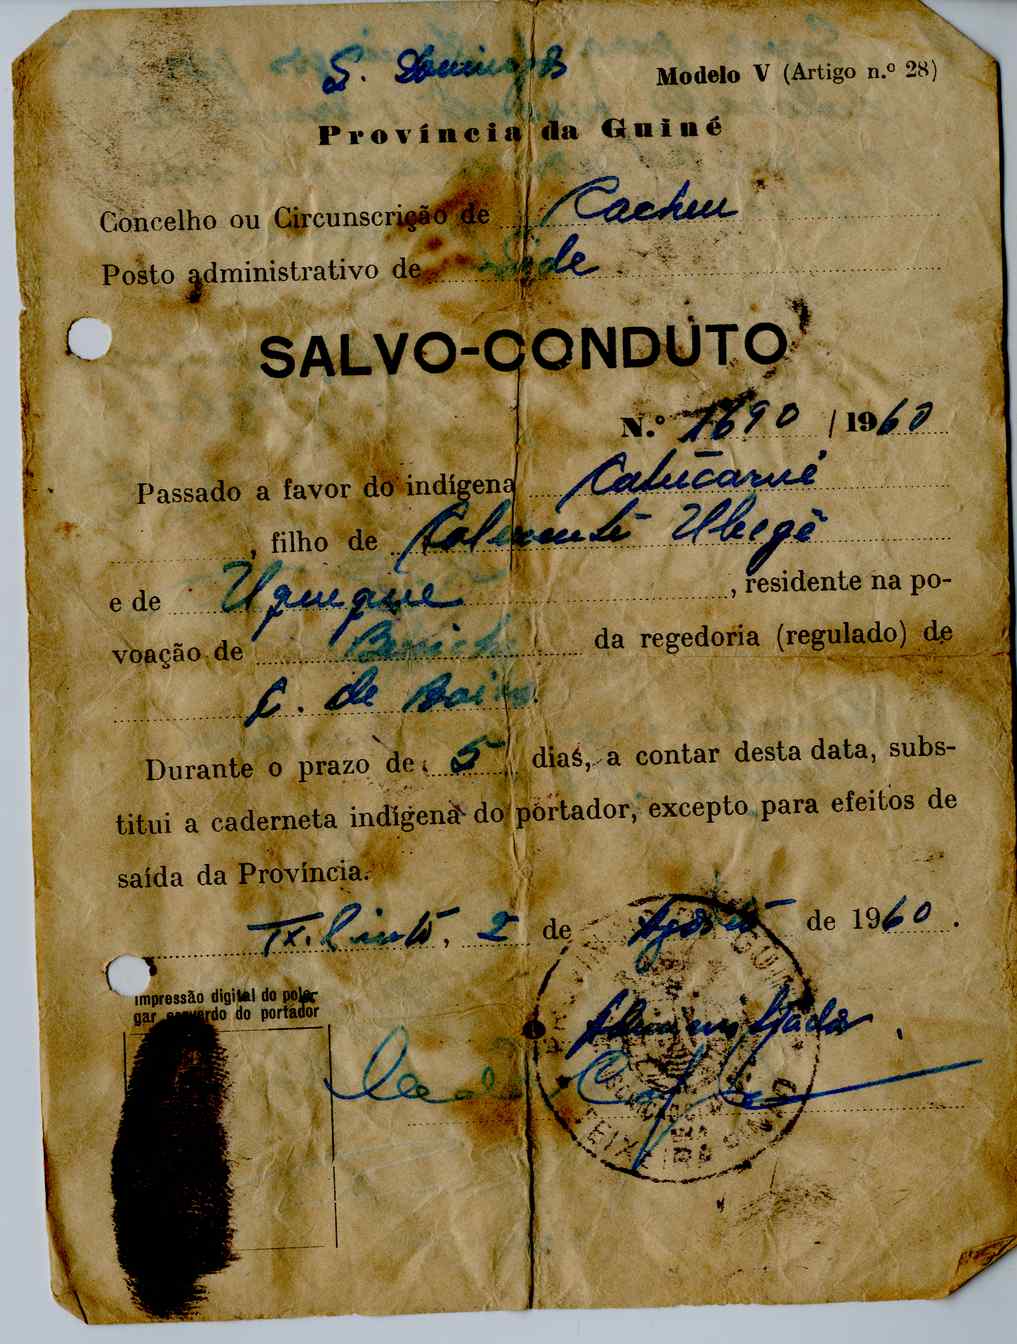 S. Domingos
Modelo V (Artigo n.º 28)
Província da Guiné
Concelho ou Circunscrição de Cacheu
Posto administrativo de Sede
SALVO-CONDUTO
N.º 1690 / 1960
Passado a favor do indígena Catucarné
, filho de Ubegê
e de Uqueque, residente na po-
voação de da regedoria (regulado) de
C. de Baixo
Durante o prazo de 5 dias, a contar desta data, subs-
titui a caderneta indígena do portador, excepto para efeitos de
saída da Província.
Tx. Pinto, 2 de Agosto de 1960.
Impressão digital do pole-
gar esquerdo do portador
O Administrador,
PROVÍNCIA DA GUINÉ
TEIXEIRA PINTO